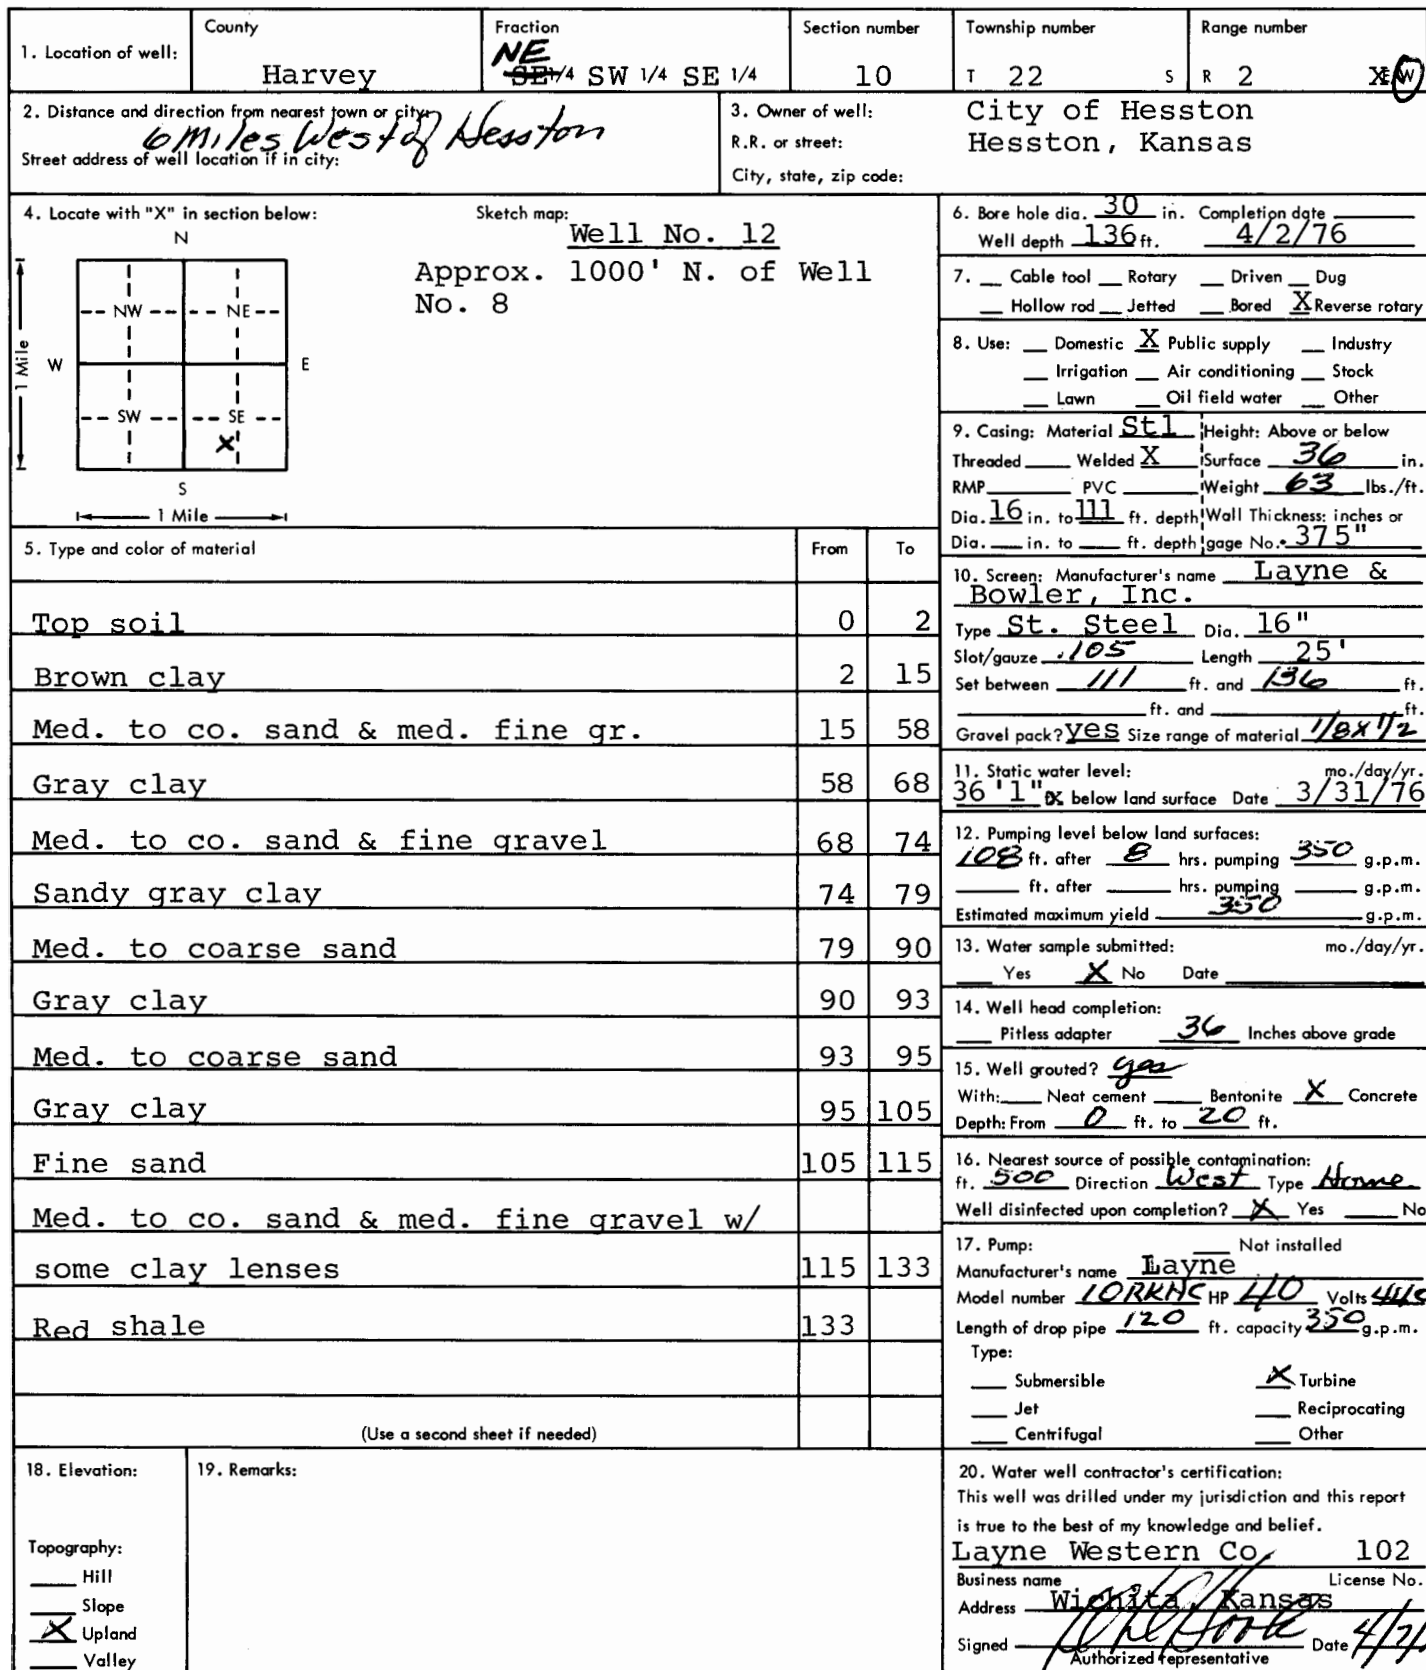 1. Location of well:
County
Harvey
Fraction
NE
SE 1/4 SW 1/4 SE 1/4
Section number
10
Township number
T 22 S
Range number
R 2 XE W
2. Distance and direction from nearest town or city:
6 miles West of Hesston
Street address of well location if in city:
3. Owner of well:
R.R. or street:
City, state, zip code:
City of Hesston
Hesston, Kansas
4. Locate with "X" in section below:
N
NW NE
1 Mile W E
SW SE
X
S
1 Mile
Sketch map:
Well No. 12
Approx. 1000' N. of Well
No. 8
5. Type and color of material From To
Top soil 0 2
Brown clay 2 15
Med. to co. sand & med. fine gr. 15 58
Gray clay 58 68
Med. to co. sand & fine gravel 68 74
Sandy gray clay 74 79
Med. to coarse sand 79 90
Gray clay 90 93
Med. to coarse sand 93 95
Gray clay 95 105
Fine sand 105 115
Med. to co. sand & med. fine gravel w/
some clay lenses 115 133
Red shale 133
(Use a second sheet if needed)
6. Bore hole dia. 30 in. Completion date
Well depth 136 ft. 4/2/76
7. Cable tool Rotary Driven Dug
Hollow rod Jetted Bored X Reverse rotary
8. Use: Domestic X Public supply Industry
Irrigation Air conditioning Stock
Lawn Oil field water Other
9. Casing: Material Stl Height: Above or below
Threaded Welded X Surface 36 in.
RMP PVC Weight 63 lbs./ft.
Dia. 16 in. to 111 ft. depth Wall Thickness: inches or
Dia. in. to ft. depth gage No. .375"
10. Screen: Manufacturer's name Layne &
Bowler, Inc.
Type St. Steel Dia. 16"
Slot/gauze .105 Length 25'
Set between 111 ft. and 136 ft.
ft. and ft.
Gravel pack? Yes Size range of material 1/8 x 1/2
11. Static water level: mo./day/yr.
36'1" below land surface Date 3/31/76
12. Pumping level below land surfaces:
108 ft. after 8 hrs. pumping 350 g.p.m.
ft. after hrs. pumping g.p.m.
Estimated maximum yield 350 g.p.m.
13. Water sample submitted: mo./day/yr.
Yes X No Date
14. Well head completion:
Pitless adapter 36 Inches above grade
15. Well grouted? yes
With: Neat cement Bentonite X Concrete
Depth: From 0 ft. to 20 ft.
16. Nearest source of possible contamination:
ft. 500 Direction West Type Home
Well disinfected upon completion? X Yes No
17. Pump: Not installed
Manufacturer's name Layne
Model number 10RKHC HP 40 Volts
Length of drop pipe 120 ft. capacity 350 g.p.m.
Type:
Submersible X Turbine
Jet Reciprocating
Centrifugal Other
18. Elevation:
Topography:
Hill
Slope
X Upland
Valley
19. Remarks:
20. Water well contractor's certification:
This well was drilled under my jurisdiction and this report
is true to the best of my knowledge and belief.
Layne Western Co. 102
Business name License No.
Address Wichita, Kansas
Signed Date 4/7/
Authorized representative